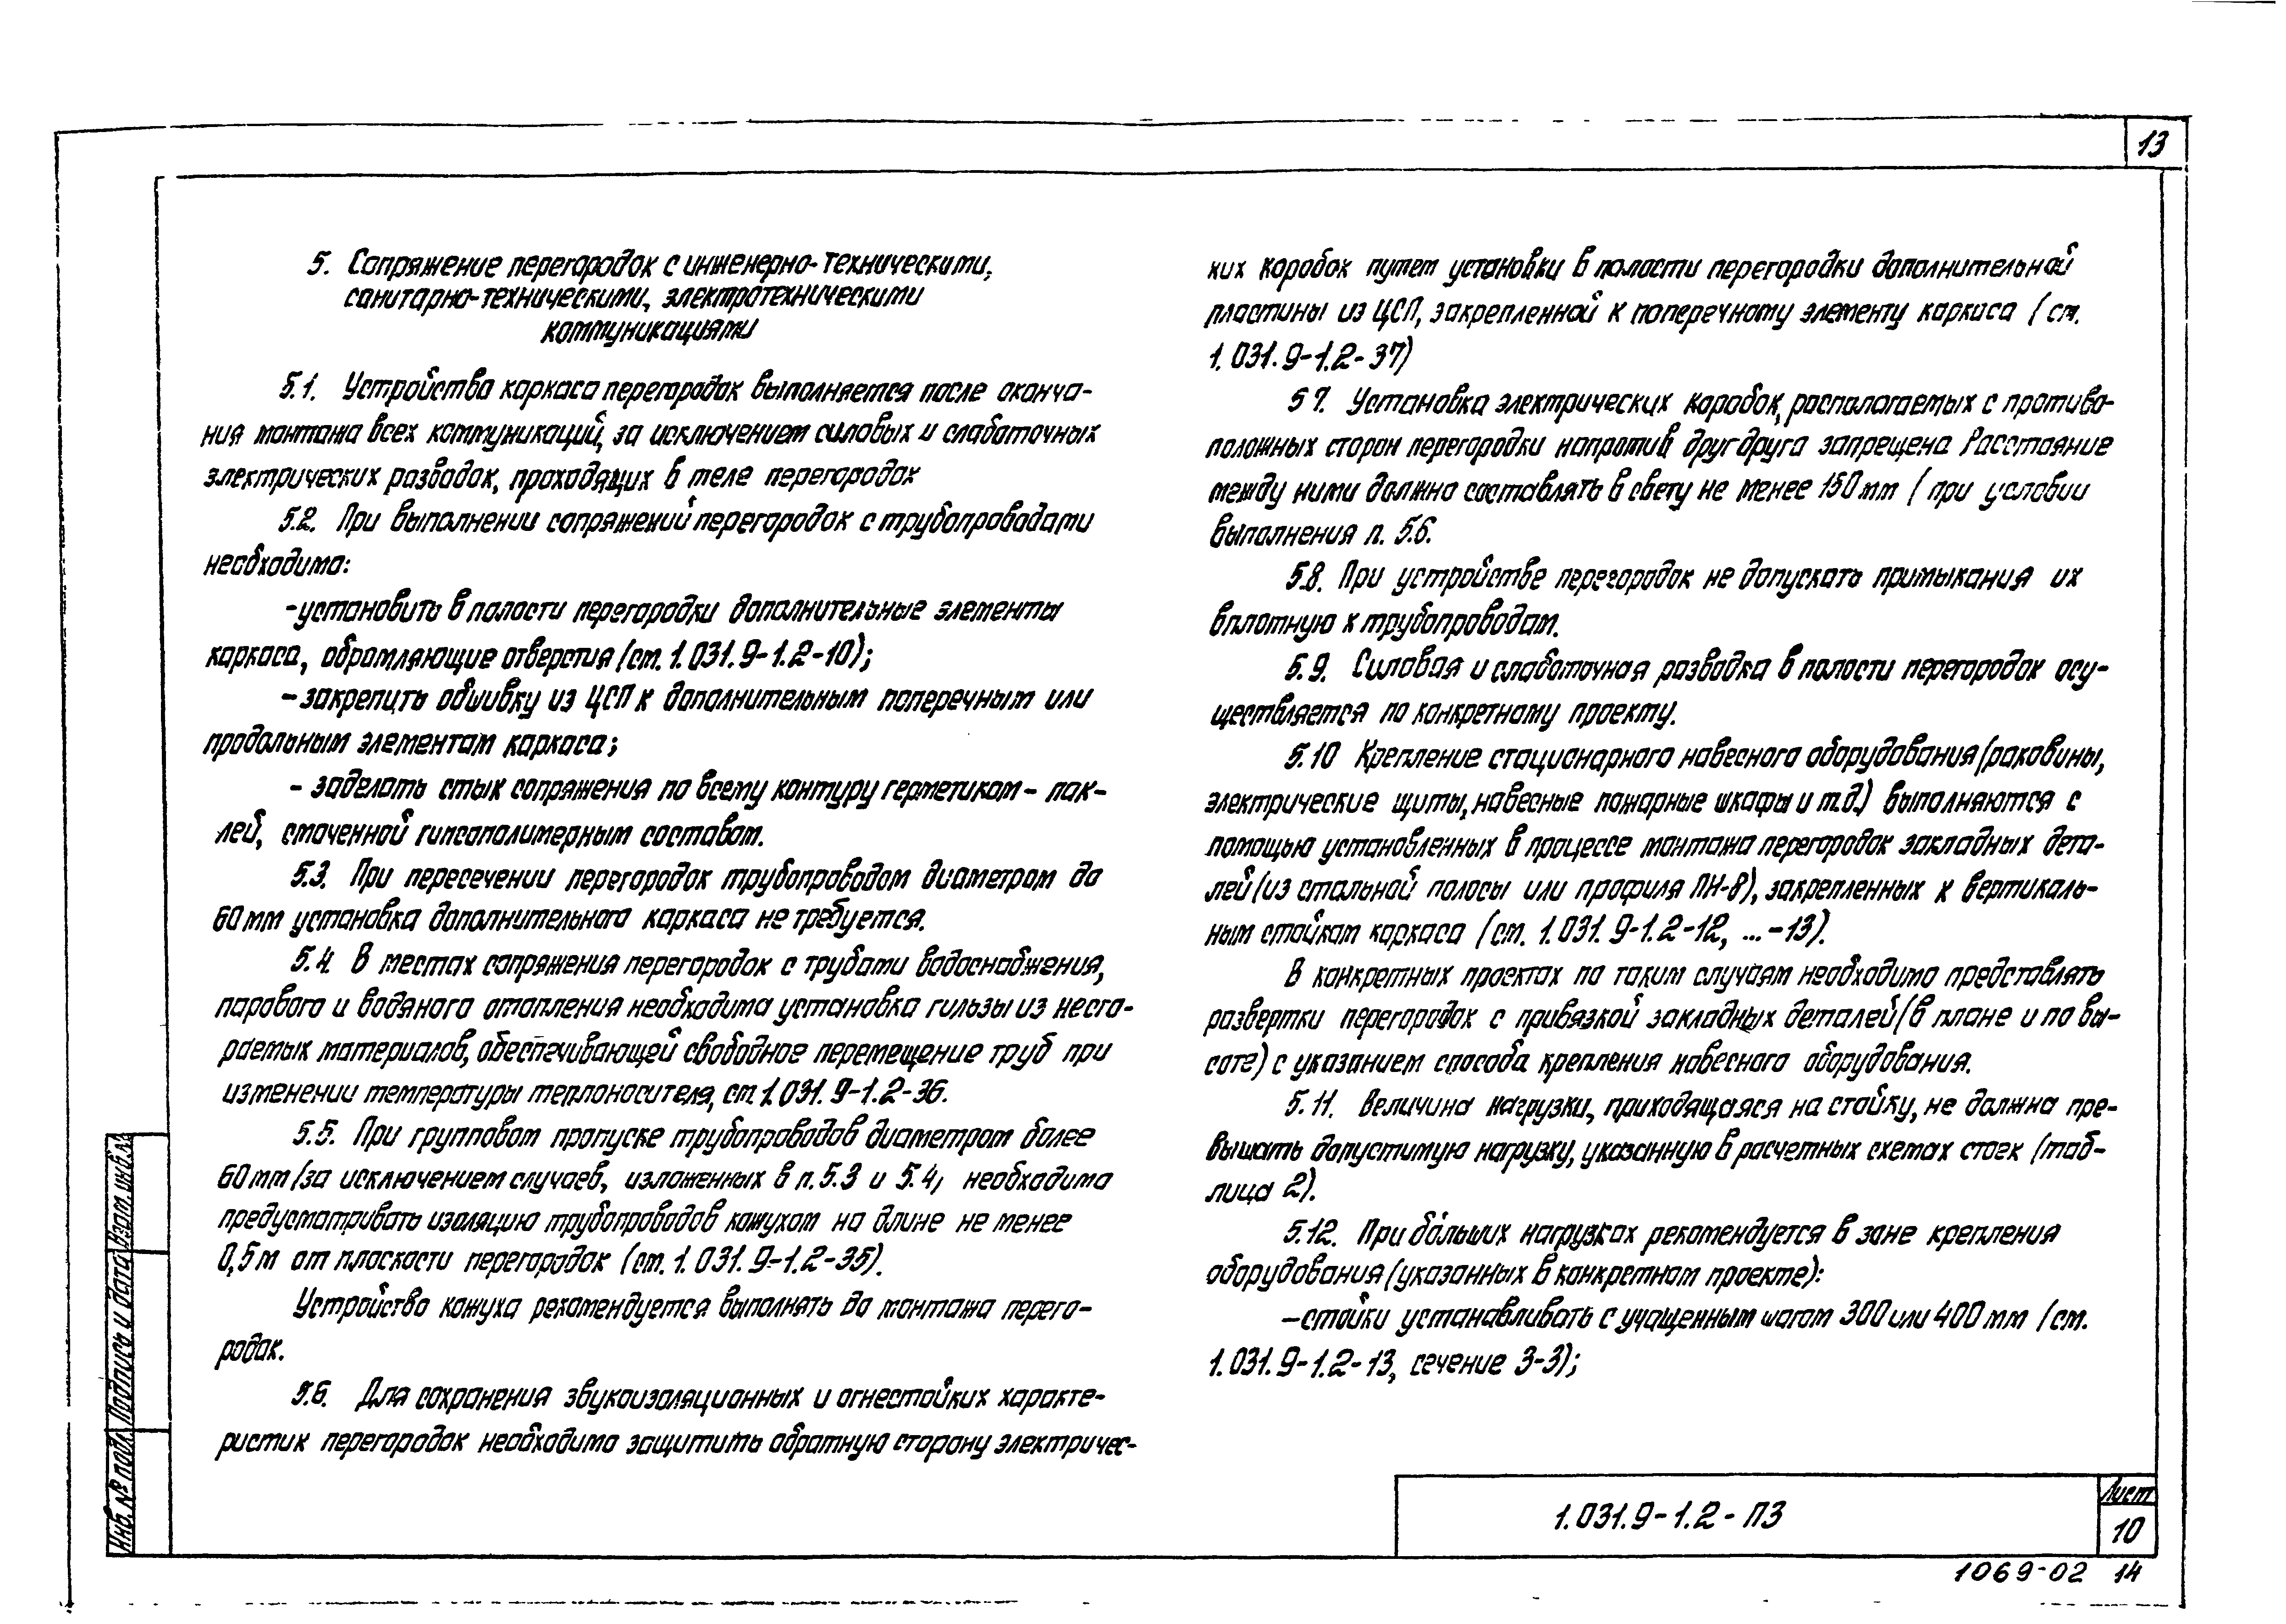 13
5. Сопряжение перегородок с инженерно-техническими,
санитарно-техническими, электротехническими
коммуникациями
5.1. Устройство каркаса перегородок выполняется после оконча-
ния монтажа всех коммуникаций, за исключением силовых и слаботочных
электрических разводок, проходящих в теле перегородок
5.2. При выполнении сопряжений перегородок с трубопроводами
необходимо:
-установить в полости перегородки дополнительные элементы
каркаса, обрамляющие отверстия (см. 1.031.9-1.2-10);
- закрепить обшивку из ЦСП к дополнительным поперечным или
продольным элементам каркаса;
- заделать стык сопряжения по всему контуру герметиком - пак-
лей, смоченной гипсополимерным составом.
5.3. При пересечении перегородок трубопроводом диаметром до
60 мм установка дополнительного каркаса не требуется.
5.4. В местах сопряжения перегородок с трубами водоснабжения,
парового и водяного отопления необходима установка гильзы из несго-
раемых материалов, обеспечивающей свободное перемещение труб при
изменении температуры теплоносителя, см 1.031.9-1.2-36.
5.5. При групповом пропуске трубопроводов диаметром более
60 мм (за исключением случаев, изложенных в п. 5.3 и 5.4, необходимо
предусматривать изоляцию трубопроводов кожухом на длине не менее
0,5 м от плоскости перегородок (см. 1.031.9-1.2-35).
Устройство кожуха рекомендуется выполнять до монтажа перего-
родок.
5.6. Для сохранения звукоизоляционных и огнестойких характе-
ристик перегородок необходимо защитить обратную сторону электричес-
ких коробок путем установки в полости перегородки дополнительной
пластины из ЦСП, закрепленной к поперечному элементу каркаса (см.
1.031.9-1.2-37)
5 7. Установка электрических коробок, располагаемых с противо-
положных сторон перегородки напротив друг друга запрещена Расстояние
между ними должно составлять в свету не менее 150 мм (при условии
выполнения п. 5.6.
5.8. При устройстве перегородок не допускать примыкания их
вплотную к трубопроводам.
5.9. Силовая и слаботочная разводка в полости перегородок осу-
ществляется по конкретному проекту.
5.10 Крепление стационарного навесного оборудования (раковины,
электрические щиты, навесные пожарные шкафы и т.д.) выполняются с
помощью установленных в процессе монтажа перегородок закладных дета-
лей (из стальной полосы или профиля ПН-8), закрепленных к вертикаль-
ным стойкам каркаса (см. 1.031.9-1.2-12, ...-13).
В конкретных проектах по таким случаям необходимо представлять
развертки перегородок с привязкой закладных деталей (в плане и по вы-
соте) с указанием способа крепления навесного оборудования.
5.11. Величина нагрузки, приходящаяся на стойку, не должна пре-
вышать допустимую нагрузку, указанную в расчетных схемах стоек (таб-
лица 2).
5.12. При бо́льших нагрузках рекомендуется в зоне крепления
оборудования (указанных в конкретном проекте):
-стойки устанавливать с учащенным шагом 300 или 400 мм (см.
1.031.9-1.2-13, сечение 3-3);
Инв. № подл. Подпись и дата Взам. инв. №
1.031.9-1.2-ПЗ
Лист
10
1069-02 14